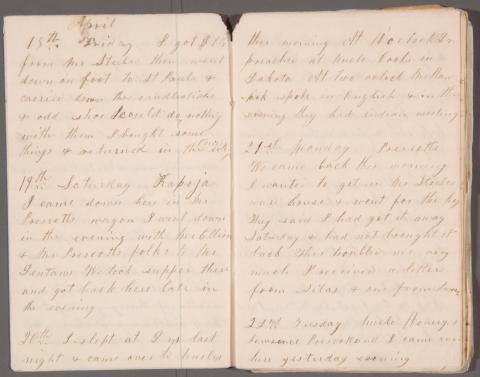 April
18th Friday I got $1
from Mr Steele then went
down on foot to St Pauls &
carried down the candlesticks
& odd shoe I could do nothing
with them I bought some
things & returned in the
19th Saturday Kapoja
I came down here in Mr
Prescotts wagon I went down
in the evening with Mr
& Mr Prescotts folks to Mr
We took supper there
and got back here late in
the evening
20th I slept at Dr last
night & came over to Uncles
this morning At 10 oclock Dr
preached at Uncle Cooks in
Dakota At two oclock
spoke in English & in the
evening they had indian meeting
21st Monday Prescotts
We came back this morning
I wanted to get in Mr Steeles
ware house & went for the key
They said I had got it away
Saturday & had not brought it
back This troubled me very
much I received a letter
from Silas & one from
22nd Tuesday Uncle Henrys
Lawrence Prescott and I came over
here yesterday evening